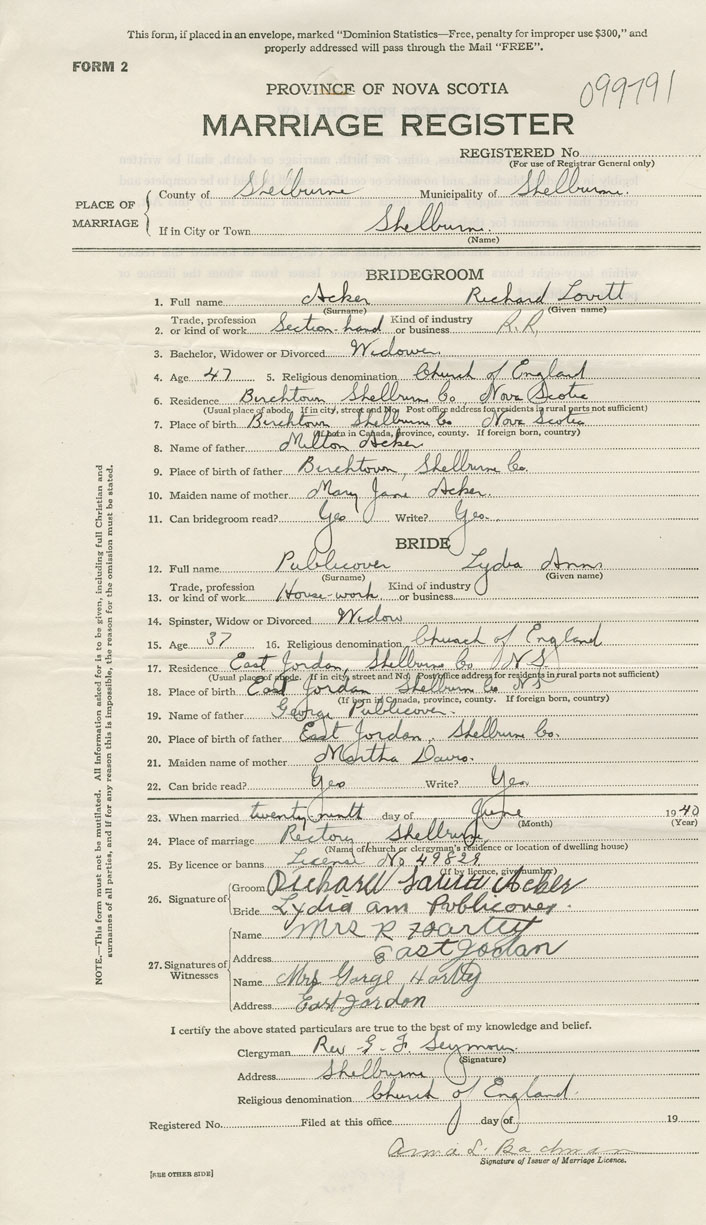 This form, if placed in an envelope, marked "Dominion Statistics—Free, penalty for improper use $300," and
properly addressed will pass through the Mail "FREE".
FORM 2
PROVINCE OF NOVA SCOTIA
099791
MARRIAGE REGISTER
REGISTERED No.
(For use of Registrar General only)
PLACE OF MARRIAGE
County of Shelburne Municipality of Shelburne.
If in City or Town Shelburne.
(Name)
BRIDEGROOM
1. Full name Acker Richard Lovitt
(Surname) (Given name)
2. Trade, profession or kind of work Section-hand Kind of industry or business R.R.
3. Bachelor, Widower or Divorced Widower
4. Age 47 5. Religious denomination Church of England
6. Residence Birchtown Shelburne Co Nova Scotia
(Usual place of abode. If in city, street and No. Post office address for residents in rural parts not sufficient)
7. Place of birth Birchtown Shelburne Co Nova Scotia
(If born in Canada, province, county. If foreign born, country)
8. Name of father Milton Acker
9. Place of birth of father Birchtown, Shelburne Co.
10. Maiden name of mother Mary Jane Acker.
11. Can bridegroom read? Yes Write? Yes.
BRIDE
12. Full name Publicover Lydia Ann
(Surname) (Given name)
13. Trade, profession or kind of work House-work Kind of industry or business
14. Spinster, Widow or Divorced Widow
15. Age 37 16. Religious denomination Church of England
17. Residence East Jordan, Shelburne Co N.S.
(Usual place of abode. If in city, street and No. Post office address for residents in rural parts not sufficient)
18. Place of birth East Jordan Shelburne Co N.S
(If born in Canada, province, county. If foreign born, country)
19. Name of father George Publicover.
20. Place of birth of father East Jordan, Shelburne Co.
21. Maiden name of mother Martha Davis.
22. Can bride read? Yes Write? Yes.
23. When married twenty ninth day of June 1940
(Month) (Year)
24. Place of marriage Rectory Shelburne
(Name of church or clergyman's residence or location of dwelling house)
25. By licence or banns License No 49829
(If by licence, give number)
26. Signature of
Groom Richard Acker
Bride Lydia ann Publicover.
27. Signatures of Witnesses
Name Mrs R
Address East Jordan
Name Mrs Gorge
Address East Jordon
I certify the above stated particulars are true to the best of my knowledge and belief.
Clergyman Rev G. F. Seymour
(Signature)
Address Shelburne
Religious denomination Church of England.
Registered No. Filed at this office day of 19
Anna L. Bachman
Signature of Issuer of Marriage Licence.
[SEE OTHER SIDE]
NOTE.—This form must not be mutilated. All information asked for is to be given, including full Christian and
surnames of all parties, and if for any reason this is impossible, the reason for the omission must be stated.